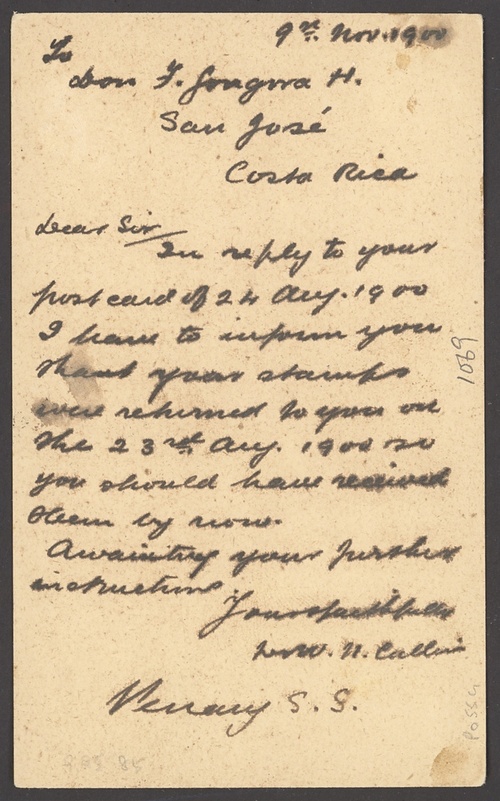 9th. Nov. 1900
To
Don F. Gongora H.
San José
Costa Rica
dear Sir
In reply to your
postcard of 24 Aug. 1900
I have to inform you
that your stamps
were returned to you on
the 23rd Aug. 1900 so
you should have received
them by now.
Awaiting your further
instructions
Yours faithfully
W. N. Callin
Penang S. S.
1069